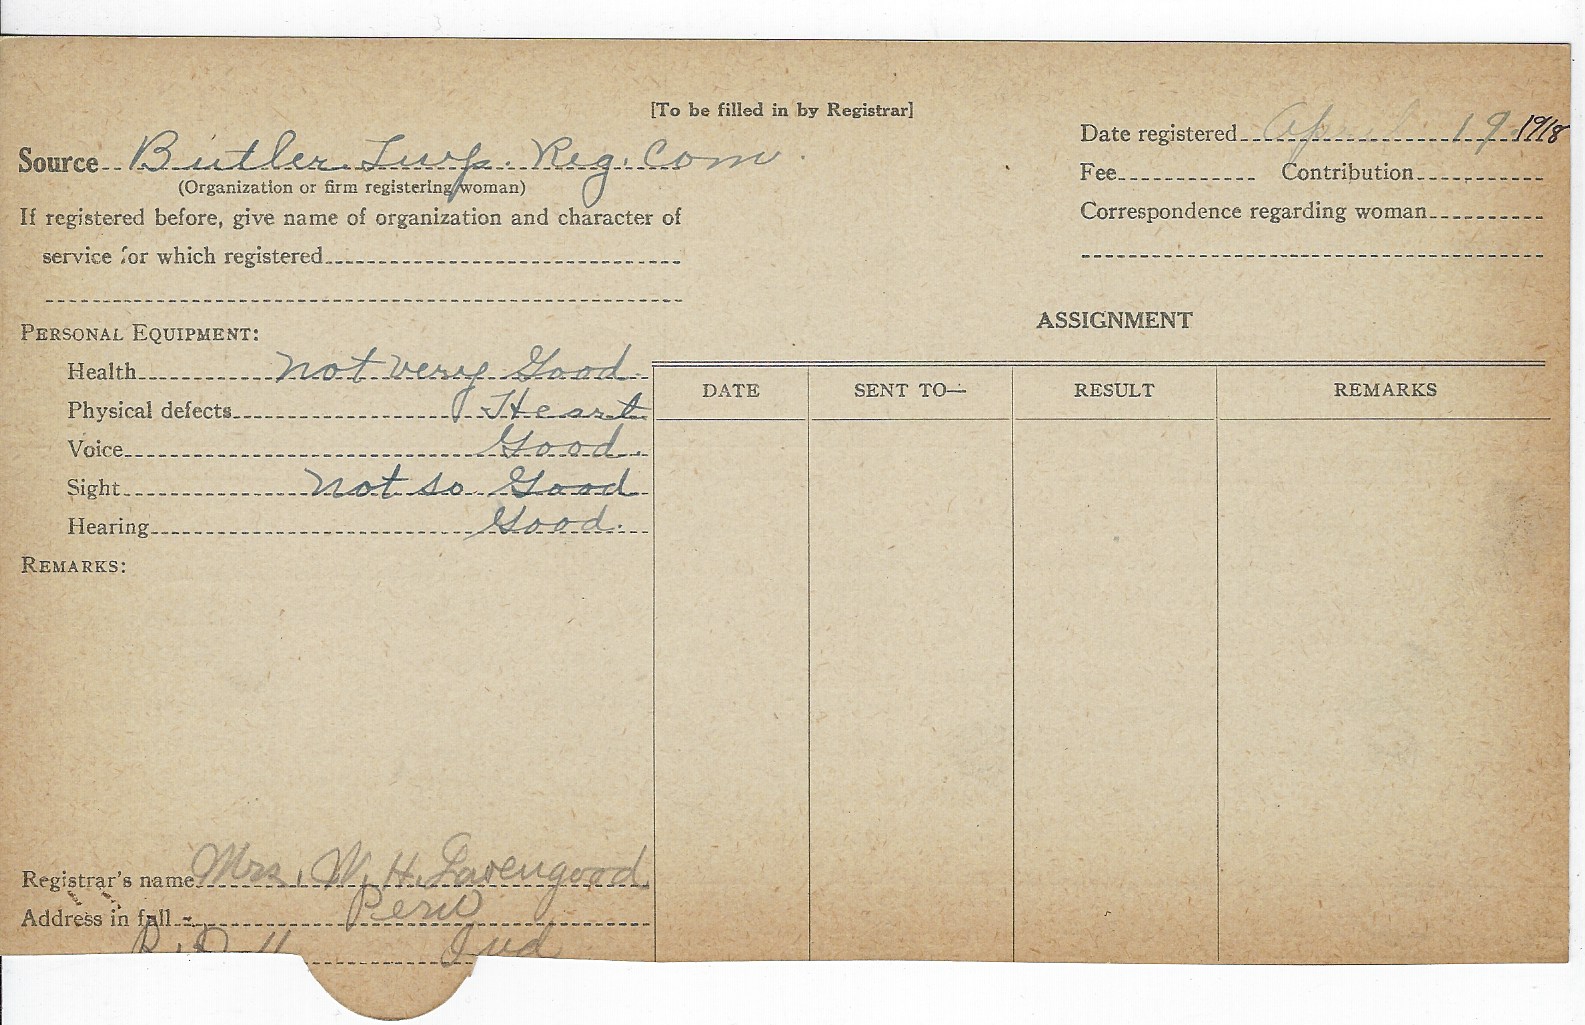 [To be filled in by Registrar]
Source Butler Twp. Reg. Com.
(Organization or firm registering woman)
If registered before, give name of organization and character of
service for which registered
Date registered April 19 1918
Fee Contribution
Correspondence regarding woman
PERSONAL EQUIPMENT:
Health not very Good
Physical defects Heart
Voice Good
Sight not so Good
Hearing Good
REMARKS:
Registrar's name Mrs. W. H. Lavengood
Address in full Peru
R. Ind
ASSIGNMENT
DATE SENT TO— RESULT REMARKS